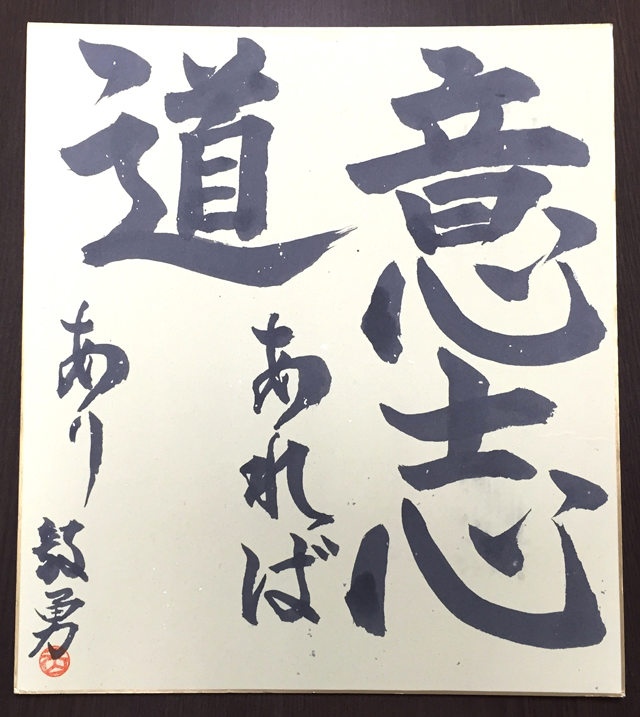 意志
あれば
道
あり
毅勇